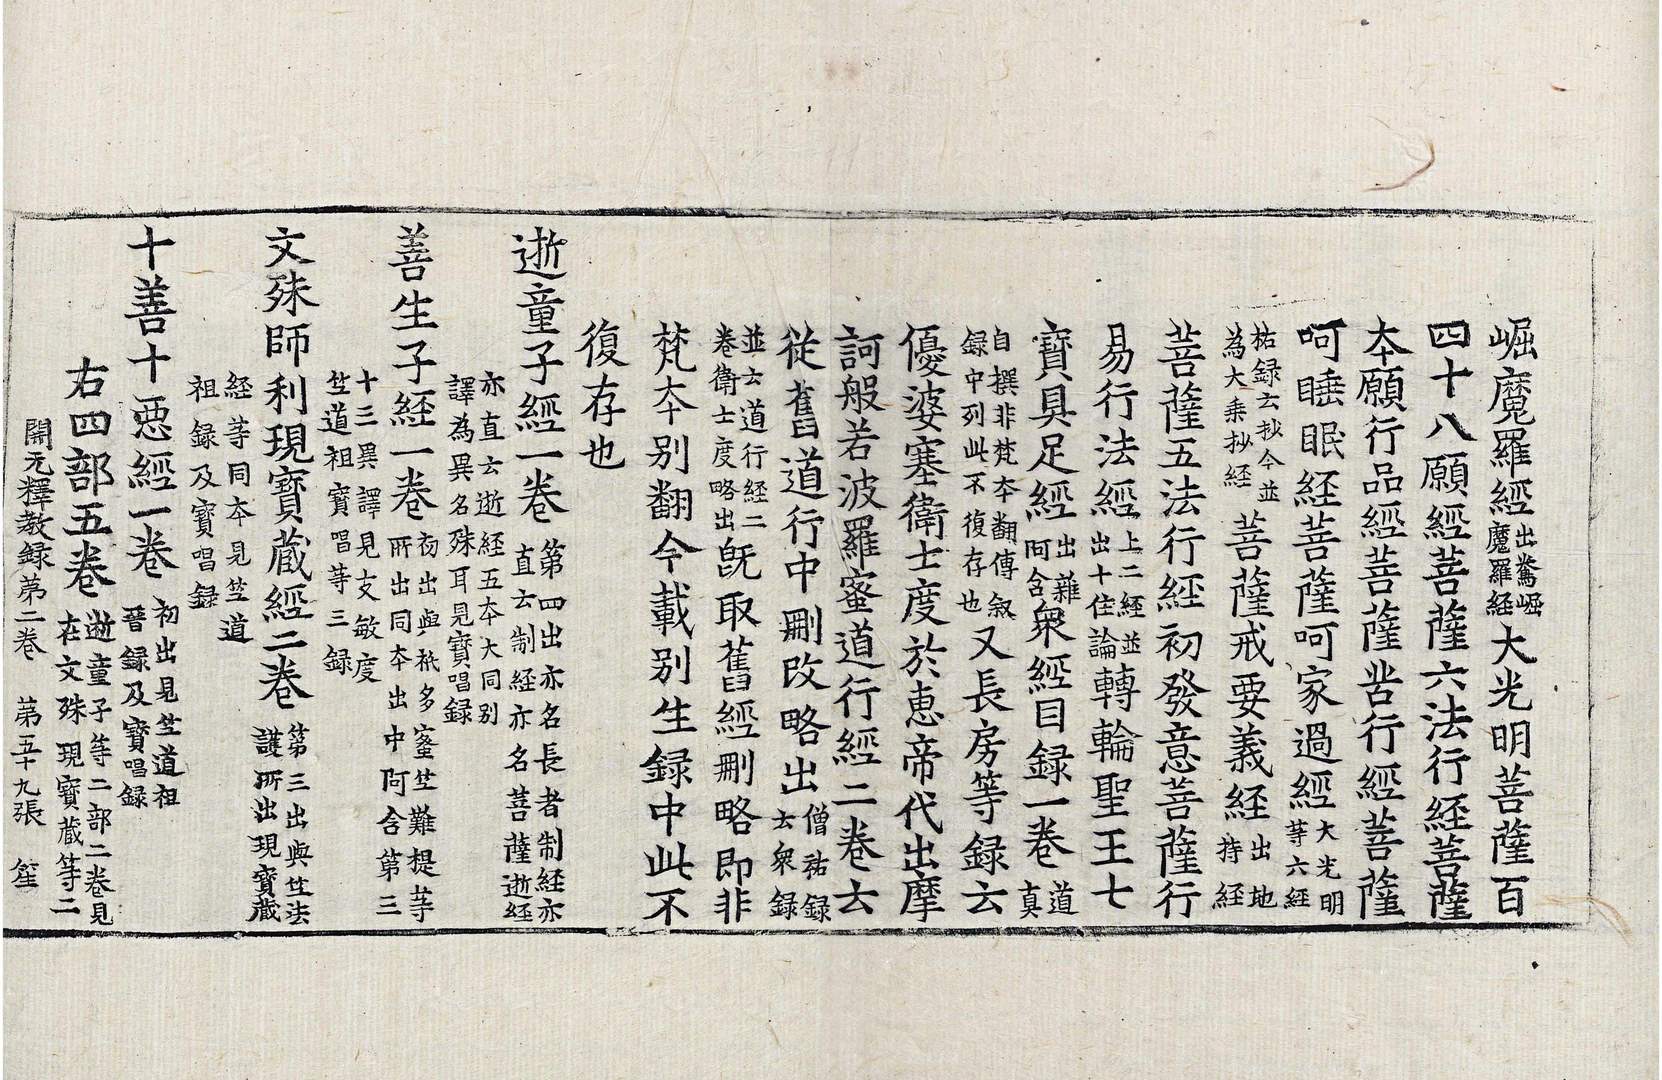 崛魔羅經出鴦崛魔羅經大光明菩薩百
四十八願經菩薩六法行經菩薩
本願行品經菩薩苦行經菩薩
呵睡眠經菩薩呵家過經大光明等六經
祐録云抄今並為大乗抄經菩薩戒要義經出地持經
菩薩五法行經初發意菩薩行
易行法經上二經並出十住論轉輪聖王七
寶具足經出雜阿含衆經目録一卷道真
自撰非梵本翻傳叙録中列此不復存也又長房等録云
優婆塞衛士度於惠帝代出摩
訶般若波羅蜜道行經二卷云
從舊道行中刪改略出僧祐録云衆録
並云道行經二卷衛士度略出旣取舊經刪略即非
梵本别翻今載别生録中此不
復存也
逝童子經一卷第四出亦名長者制經亦直云制經亦名菩薩逝經
亦直云逝經五本大同别譯為異名殊耳見寶唱録
善生子經一卷初出與秖多蜜竺難提等所出同本出中阿含第三
十三異譯見支敏度竺道祖寶唱等三録
文殊師利現寶蔵經二卷第三出與竺法護所出現寶蔵
經等同本見竺道祖録及寶唱録
十善十惡經一卷初出見竺道祖晉録及寶唱録
右四部五卷逝童子等二部二卷見在文殊現寶蔵等二
開元釋教録第二卷　第五十九張　笙